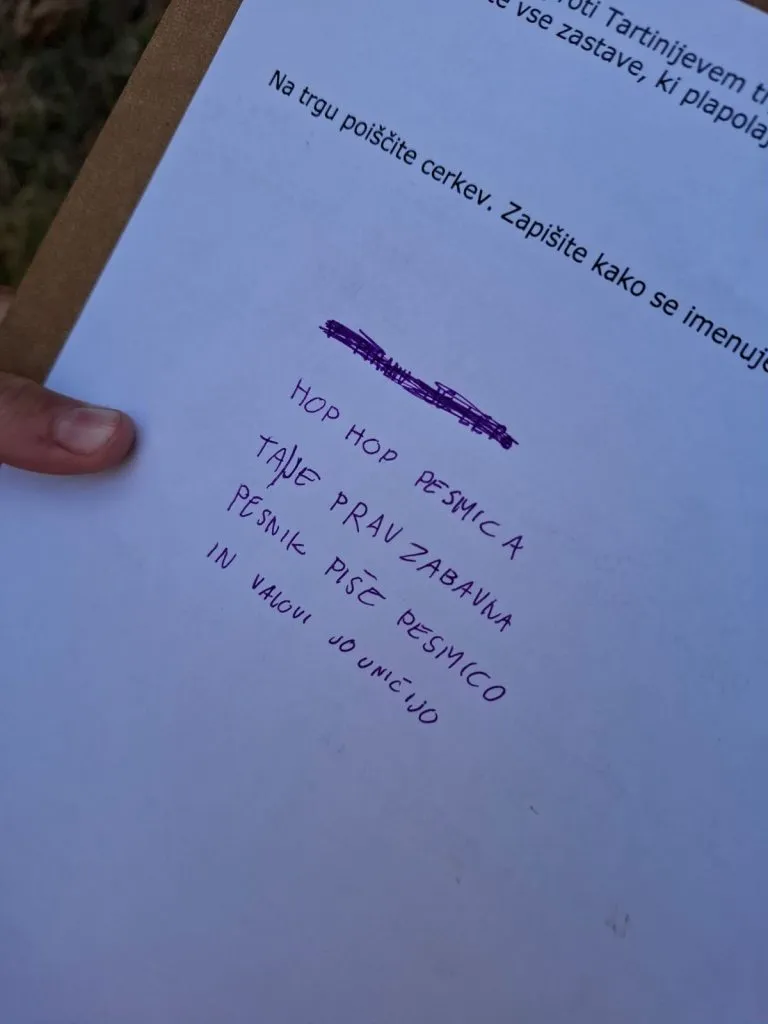 roti Tartinijevem
te vse zastave, ki plapolaj
Na trgu poiščite cerkev. Zapišite kako se imenuje
HOP HOP PESMICA
TA JE PRAV ZABAVNA
PESNIK PIŠE PESMICO
IN VALOVI JO UNIČIJO